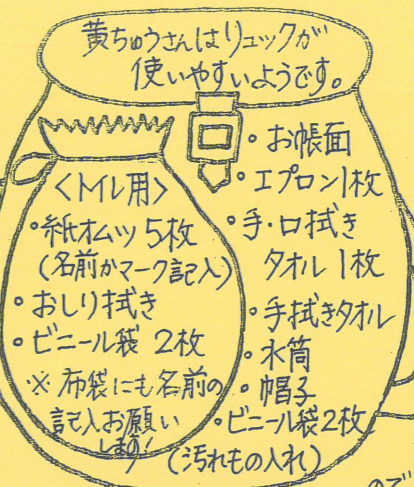 黄ちゅうさんはリュックが
使いやすいようです。
<トイレ用>
・紙オムツ 5枚
(名前かマーク記入)
・おしり拭き
・ビニール袋 2枚
※ 布袋にも名前の
記入お願い
します!
・お帳面
・エプロン1枚
・手・口拭き
タオル 1枚
・手拭きタオル
・水筒
・帽子
・ビニール袋2枚
(汚れもの入れ)
ので